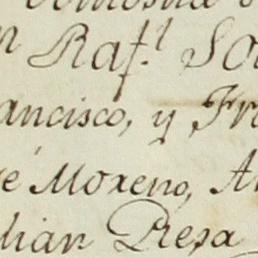 n Raf.l So
ancisco, y Fra
é Moreno, An
lian Resa